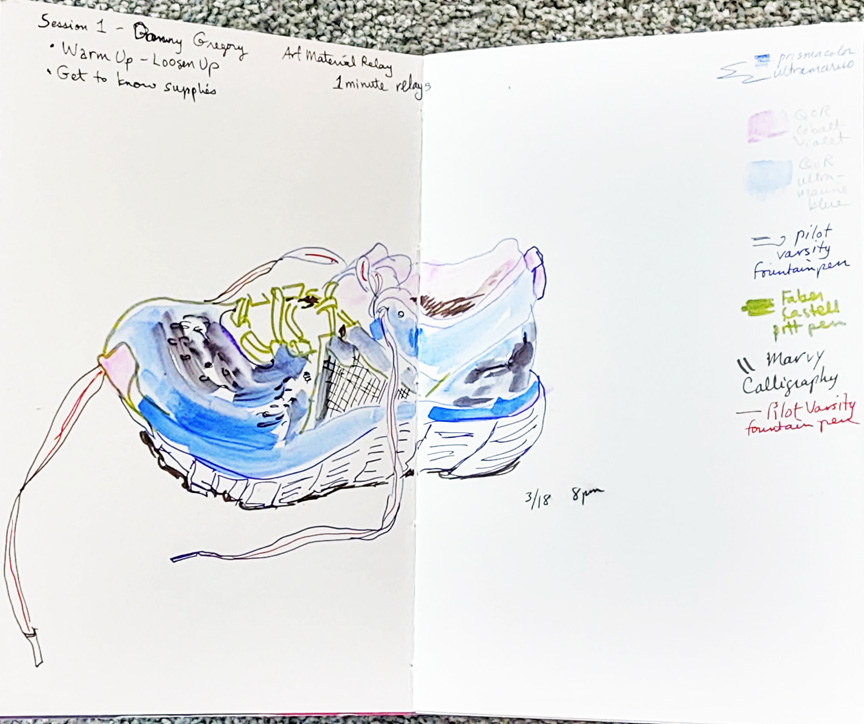 Session 1 - Danny Gregory
• Warm Up - Loosen Up
• Get to know supplies
Art Material Relay
1 minute relays
prismacolor
ultramarine
QoR
cobalt
violet
QoR
ultra-
marine
blue
pilot
varsity
fountain pen
Faber
Castell
pitt pen
Marvy
Calligraphy
Pilot Varsity
fountain pen
3/18 8pm